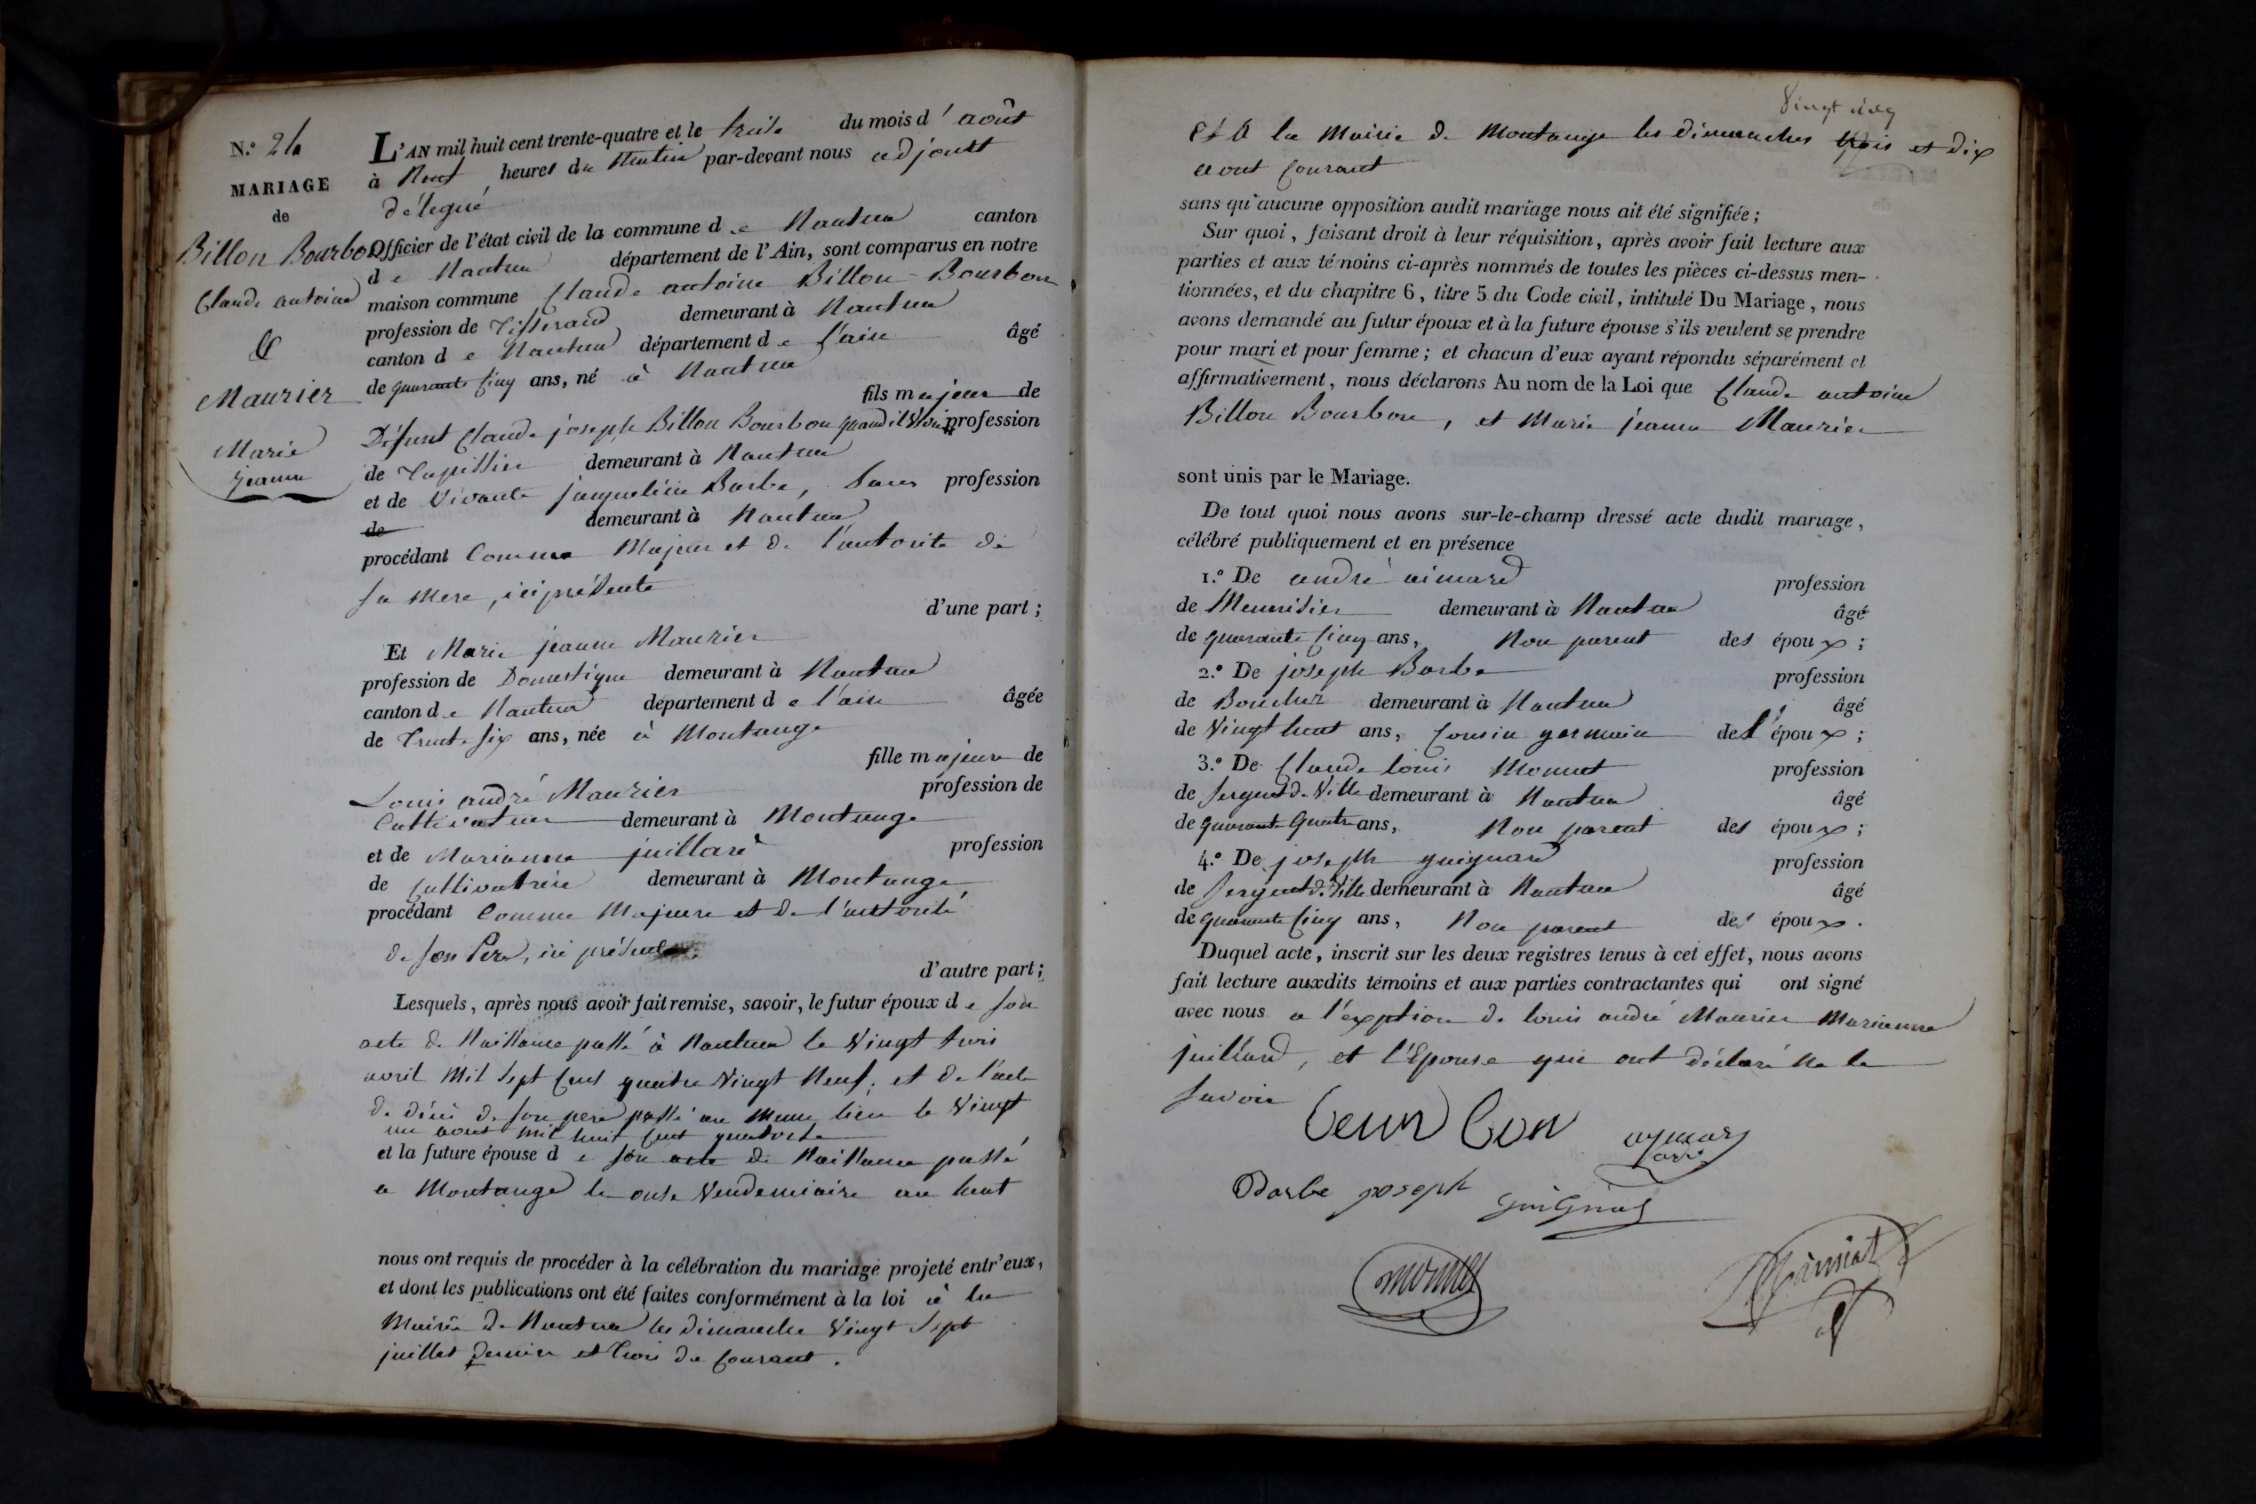 N.º 24
MARIAGE
de
Billon Bourbon
Claude antoine
&
Maurier
Marie
jeanne
L'AN mil huit cent trente-quatre et le treize du mois d'août
à Neuf heures du Matin par-devant nous adjoint
délégué
Officier de l'état civil de la commune de Nantua canton
de Nantua département de l'Ain, sont comparus en notre
maison commune Claude antoine Billon-Bourbon
profession de Tisserand demeurant à Nantua
canton de Nantua département de l'ain âgé
de quarante cinq ans, né à Nantua
fils majeur de
Défunt Claude joseph Billon Bourbon quand il vivoit profession
de demeurant à Nantua
et de vivante jacqueline Barbe, sans profession
de demeurant à Nantua
procédant Comme Majeur et de l'autorité de
sa mere, ici présente
d'une part;
Et Marie jeanne Maurier
profession de Domestique demeurant à Nantua
canton de Nantua département de l'ain âgée
de Trente six ans, née à Montange
fille majeure de
Louis andré Maurier profession de
Cultivateur demeurant à Montange
et de Marianne juillard profession
de Cultivatrice demeurant à Montange,
procédant Comme Majeure et de l'autorité
de son Pere, ici présent
d'autre part;
Lesquels, après nous avoir fait remise, savoir, le futur époux de son
acte de Naissance passé à Nantua le vingt trois
avril mil sept cent quatre vingt neuf; et de l'acte
de décè de son pere passé au meme lieu le vingt
un aout mil huit cent quatorze
et la future épouse de son acte de Naissance passé
a Montange le onze vendemiaire an huit
nous ont requis de procéder à la célébration du mariage projeté entr'eux,
et dont les publications ont été faites conformément à la loi à la
Mairie de Nantua les dimanche vingt sept
juillet dernier et trois du courant.
Vingt
et à la Mairie de Montange les dimanches trois et dix
aout courant
sans qu'aucune opposition audit mariage nous ait été signifiée;
Sur quoi, faisant droit à leur réquisition, après avoir fait lecture aux
parties et aux témoins ci-après nommés de toutes les pièces ci-dessus men-
tionnées, et du chapitre 6, titre 5 du Code civil, intitulé Du Mariage, nous
avons demandé au futur époux et à la future épouse s'ils veulent se prendre
pour mari et pour femme; et chacun d'eux ayant répondu séparément et
affirmativement, nous déclarons Au nom de la Loi que Claude antoine
Billon Bourbon, et Marie jeanne Maurier
sont unis par le Mariage.
De tout quoi nous avons sur-le-champ dressé acte dudit mariage,
célébré publiquement et en présence
1.º De andré aimard profession
de Menuisier demeurant à Nantua âgé
de quarante cinq ans, Non parent des époux;
2.º De joseph Barbe profession
de Boucher demeurant à Nantua âgé
de vingt huit ans, cousin germain de l'époux;
3.º De Claude louis Monnet profession
de sergent de ville demeurant à Nantua âgé
de quarante quatre ans, Non parent des époux;
4.º De joseph guignard profession
de sergent de ville demeurant à Nantua âgé
de quarante cinq ans, Non parent des époux.
Duquel acte, inscrit sur les deux registres tenus à cet effet, nous avons
fait lecture auxdits témoins et aux parties contractantes qui ont signé
avec nous a l'exption de louis andré Maurier Marianne
juillard, et l'Epouse qui ont déclaré ne le
savoir
aymar
Barbe joseph
monnet